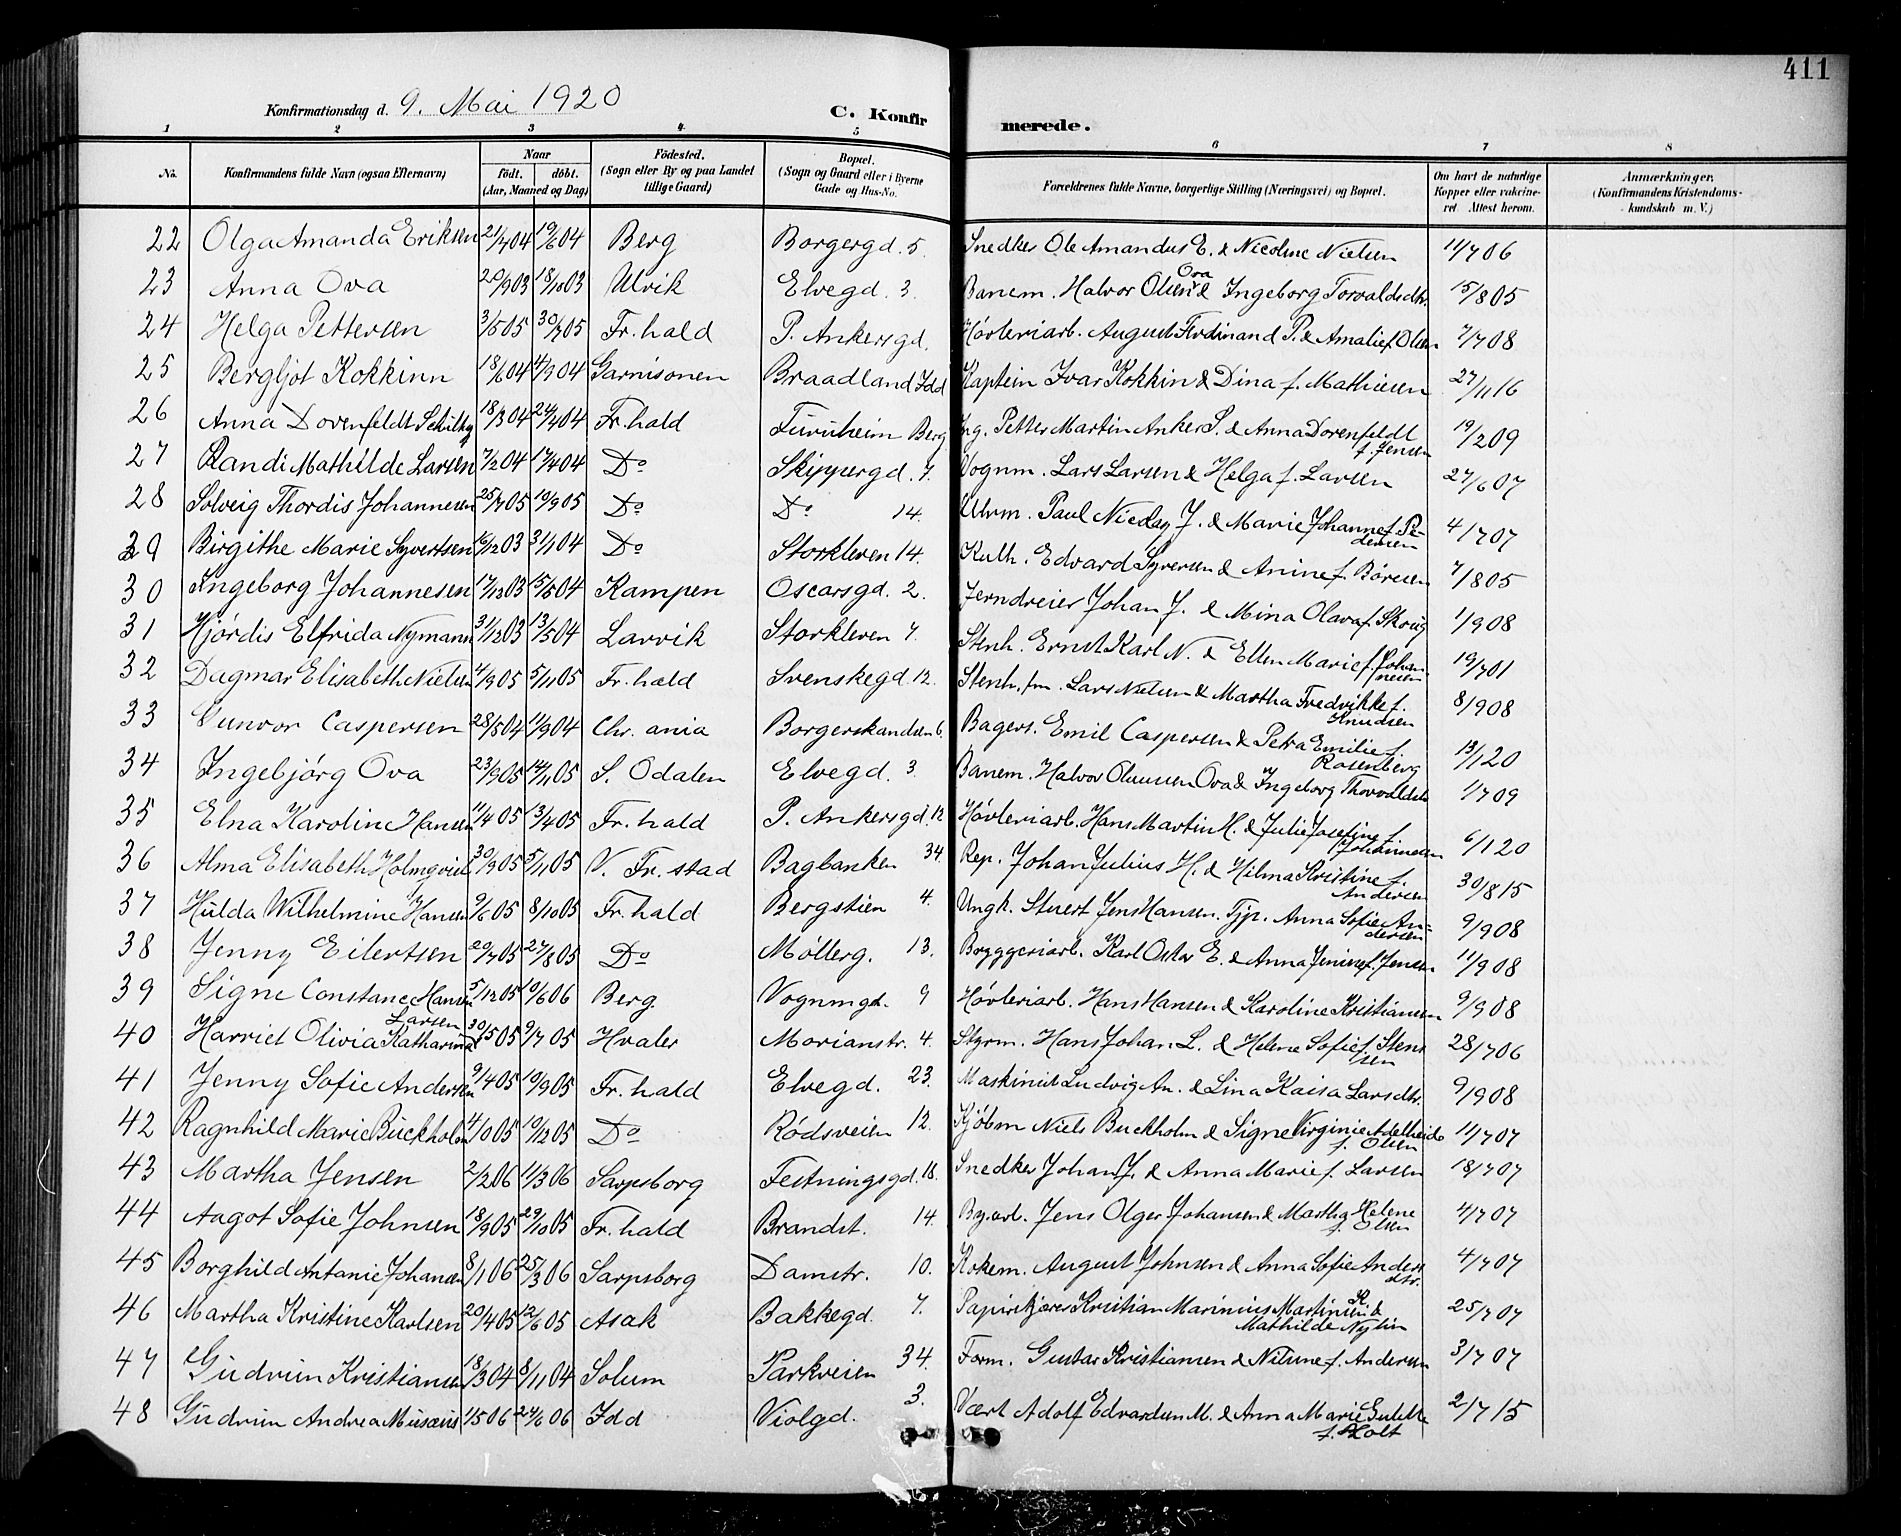 411
Konfirmationsdag d. 9. Mai 1920
C. Konfirmerede.
1 2 3 4 5 6 7 8
No. Konfirmandens fulde Navn (ogsaa Efternavn) Naar født. døbt. (Aar, Maaned og Dag) Fødested. (Sogn eller By og paa Landet tillige Gaard) Bopæl. (Sogn og Gaard eller i Byerne Gade og Hus-No. Forældrenes fulde Navne, borgerlige Stilling (Næringsvei) og Bopæl. Om havt de naturlige Kopper eller vakcineret. Attest herom. Anmærkninger. (Konfirmandens Kristendomskundskab m. V.)
22 Olga Amanda Eriksen 21/7 04 19/6 04 Berg Borgergd. 5. Snedker Ole Amandus E. & Nicoline Nielsen 11/7 06
23 Anna Ova 20/9 03 18/10 03 Ulvik Elvegd. 3. Banem. Halvor Olsen Ova & Ingeborg Torvaldsdtr. 15/8 05
24 Helga Pettersen 3/5 05 30/7 05 Fr.hald P. Ankersgd. Høvleriarb. August Ferdinand P. & Amalie f. Olsen 7/7 08
25 Bergljot Kokkinn 18/6 04 4/9 04 Garnisonen Braadland Idd Kaptein Ivar Kokkin & Dina f. Mathiesen 27/11 16
26 Anna Dovenfeldt 18/3 04 24/4 04 Fr.hald Furuheim Berg Ing. Petter Martin Anker S. & Anna Dorenfeldt f. Jensen 19/2 09
27 Randi Mathilde Larsen 7/2 04 17/4 04 Do Skippergd. 7. Vognm. Lars Larsen & Helga f. Larsen 27/6 07
28 Solveig Thordis Johannesen 25/7 05 10/9 05 Do Do 14. Uhrm. Paul Nicolay J. & Marie Johanne f. Pedersen 4/7 07
29 Birgithe Marie Syvertsen 16/12 03 3/4 04 Do Storkleven 14. Kulh. Edvard Syversen & Anine f. Børresen 7/8 05
30 Ingeborg Johannesen 17/12 03 15/5 04 Kampen Oscarsgd. 2. Jerndreier Johan J. & Mina Olava f. Skoug 1/9 08
31 Hjørdis Elfrida Nymann 31/12 03 13/5 04 Larvik Storkleven 7. Stenh. Ernst Karl N. & Ellen Marie f. Johannesen 19/7 01
32 Dagmar Elisabeth Nielsen 4/9 05 5/11 05 Fr.hald Svenskegd. 12. Stenh.fm. Lars Nielsen & Martha Fredrikke f. Knudsen 8/9 08
33 Gunvor Caspersen 28/5 04 11/9 04 Chr.ania Borgerskansen 6. Bagers. Emil Caspersen & Petra Emilie f. Rosenberg 13/1 20
34 Ingebjørg Ova 23/9 05 14/11 05 S. Odalen Elvegd. 3. Banem. Halvor Olausen Ova & Ingeborg Thorvaldsdt. 1/7 09
35 Elna Karoline Hansen 11/4 05 3/4 05 Fr.hald P. Ankersgd. 12 Høvleriarb. Hans Martin H. & Julie Josefine f. Johannesen 6/1 20
36 Alma Elisabeth Holmqvist 30/9 05 5/11 05 V. Fr.stad Bagbanken 34. Rep. Johan Julius H. & Hilma Kristine f. Andersen 30/8 15
37 Hulda Wilhelmine Hansen 9/6 05 8/10 05 Fr.hald Bergstien 4. Ungk. Stuert Jens Hansen. Tjp. Anna Sofie Andersen 9/9 08
38 Jenny Eilertsen 20/7 05 27/8 05 Do Møllerg. 13. Bryggeriarb. Karl Oskar E. & Anna Jenine f. Jensen 11/9 08
39 Signe Constance Hansen 5/12 05 10/6 06 Berg Vognmgd. 9 Høvleriarb. Hans Hansen & Karoline Kristiansen 9/9 08
40 Harriet Olivia Katharina Larsen 30/5 05 9/7 05 Hvaler Morianstr. 4. Styrm. Hans Johan L. & Helene Sofie f. Stensen 28/7 06
41 Jenny Sofie Andersen 9/4 05 10/9 05 Fr.hald Elvegd. 23. Maskinist Ludvig An. & Lina Kaisa Larsdtr. 9/9 08
42 Ragnhild Marie Buckholm 4/10 05 10/12 05 Do Rødsveien 12. Kjøbm Niels Buckholm & Signe Virginie Adelheide f. Olsen 11/7 07
43 Martha Jensen 2/2 06 11/3 06 Sarpsborg Festningsgd. 18. Snedker Johan J. & Anna Marie f. Larsen 18/7 07
44 Aagot Sofie Johnsen 18/9 05 29/10 05 Fr.hald Brandst. 14. By.arb. Jens Olger Johansen & Martha Helene f. Olsen 4/7 07
45 Borghild Antanie Johansen 8/1 06 25/3 06 Sarpsborg Damstr. 10. Kokem. August Johnsen & Anna Sofie Andersdtr. 4/7 07
46 Martha Kristine Karlsen 20/4 05 12/6 05 Asak Bakkegd. 7. Papirkjører Kristian Marinius Martinsen K. & Mathilde Nylin 25/7 07
47 Gudrun Kristiansen 18/3 04 8/11 04 Solum Parkveien 34. Form. Gustav Kristiansen & Nilsine f. Andersen 3/7 07
48 Gudrun Andrea Musæus 1/5 06 24/6 06 Idd Violgd. 3. Vært Adolf Edvardsen M. & Anna Marie Gulette f. Holt 2/7 15